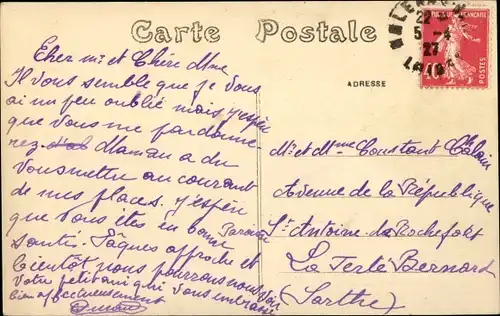 Carte Postale
22
5-4
27
RÉPUBLIQUE FRANÇAISE
POSTES
ADRESSE
Cher mr et Chère Mme
Il vous semble que je vous
ai un peu oublié mais j'espère
que vous me pardonne
rez Maman a du
vous mettre au courant
de mes places. j'espère
que vous êtes en bonne
santé. Pâques approche et
bientôt nous pourrons nous voir
Votre petit ami qui vous embrasse
bien affectueusement
Mr et Mme Constant
Avenue de la République
Paroisse St Antoine de Rochefort
La Ferté Bernard
(Sarthe)